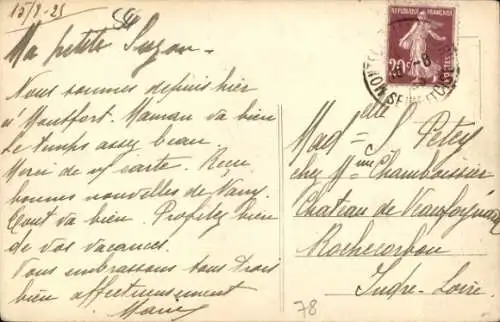 15/8-25
Ma petite Suzon -
Nous sommes depuis hier
à Montfort. Maman va bien
Le temps assez beau.
Merci de carte. Reçu
bonnes nouvelles de
Tout va bien. Profitez bien
de vos vacances.
Vous embrassons tous trois
bien affectueusement
REPUBLIQUE FRANÇAISE
20c
POSTES
Madelle S. Petey
chez Mme Chamboissier
Chateau de
Rochecorbon
Indre-Loire
78